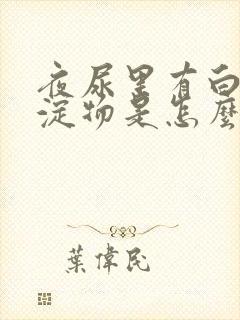 夜尿里有白
淀物是怎麽
葉偉民